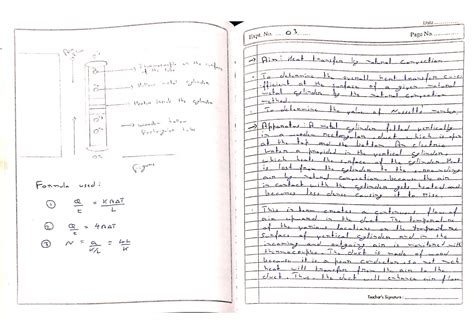 Thermocouple on the surface of the tube
Hollow metal cylinder
Heater inside the cylinder
wooden hollow rectangular tube
Figure
Formula used:
① Q/t = KAΔT/L
② Q/t = hAΔT
③ N = Q/K/L = hL/K
Date
Expt. No. 03
Page No.
→ Aim: Heat transfer by natural convection
To determine the overall heat transfer coe-
fficient at the surface of a given vertical
metal cylinder by the natural convection
method.
To determine the value of Nusselts number.
→ Apparatus: A metal cylinder fitted vertically
in a wooden rectangular duct which is open
at the top and the bottom. An electric
heater is provided in the vertical cylinder
which heats the surface of the cylinder. Heat
is lost from the cylinder to the surrounding
air by natural convection, because the air
in contact with the cylinder gets heated and
becomes less dense causing it to rise.
This in turn creates a continuous flow of
air upward in the duct. The temperature
of the various locations on the
surface of vertical cylinder and in the
incoming and outgoing air is monitored with
thermocouples. The duct is made of wood
because it is a poor conductor, so not much
heat will transfer from the air to the
duct. Thus, the duct will enhance air flow
Teacher's Signature